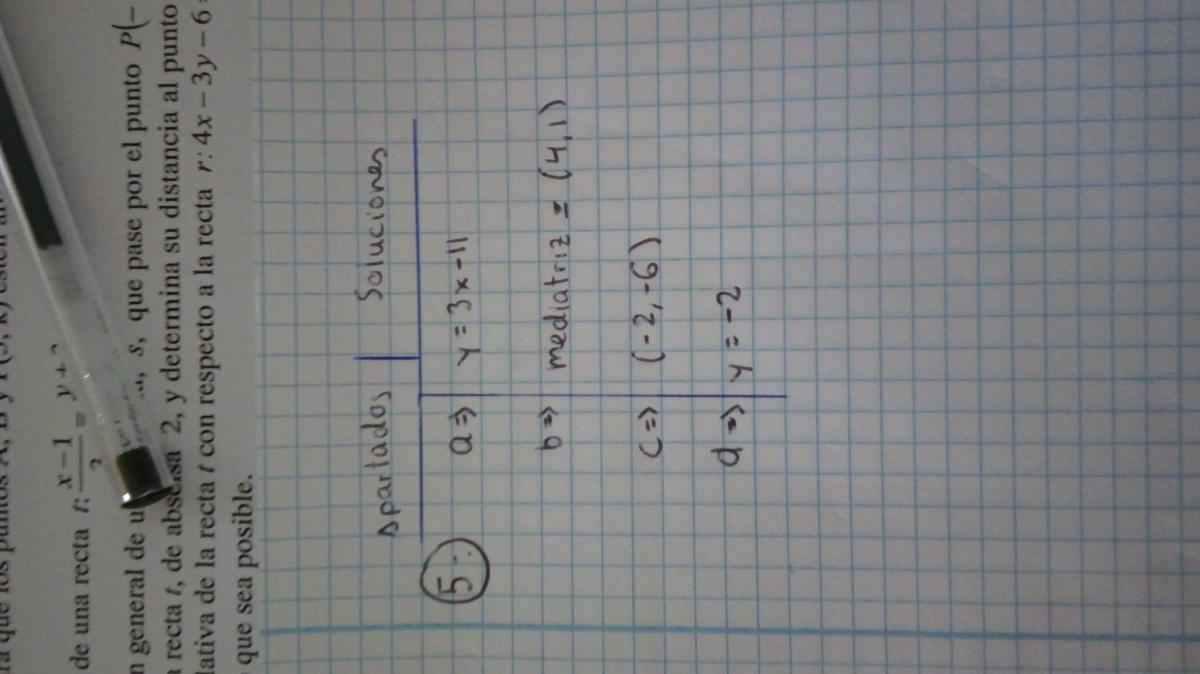 que los puntos A, B y
de una recta t: x − 1 / = y +
n general de u s, que pase por el punto P(−
recta t, de abscisa 2, y determina su distancia al punto
lativa de la recta t con respecto a la recta r: 4x − 3y − 6 =
que sea posible.
Apartados | Soluciones
5.- a => y = 3x - 11
b => mediatriz = (4,1)
c => (-2,-6)
d => y = -2